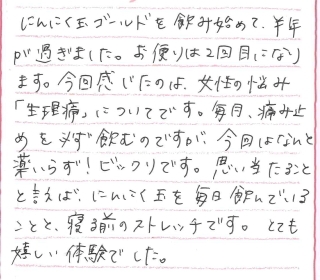 にんにく玉ゴールドを飲み始めて、半年
が過ぎました。お便りは2回目になり
ます。今回感じたのは、女性の悩み
「生理痛」についてです。毎月、痛み止
めを必ず飲むのですが、今回はなんと
薬いらず!ビックリです。思い当たること
と言えば、にんにく玉を毎日飲んでいる
ことと、寝る前のストレッチです。とても
嬉しい体験でした。